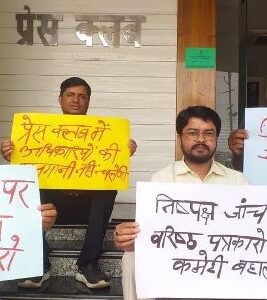 प्रेस क्लब
प्रेस क्लब में
अधिकारियों की
मनमानी नहीं चलेगी
पर
निष्पक्ष जांच
वरिष्ठ पत्रकारो
कमेटी बहाल